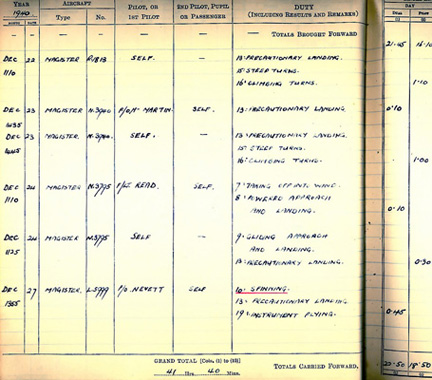 YEAR AIRCRAFT PILOT, OR 2ND PILOT, PUPIL DUTY DAY
1940 Type No. 1ST PILOT OR PASSENGER (INCLUDING RESULTS AND REMARKS) DUAL PILOT
MONTH DATE (1) (2)
— — — TOTALS BROUGHT FORWARD 21·45 16·10
DEC 22 MAGISTER SELF. — 13·PRECAUTIONARY LANDING.
1110 15·STEEP TURNS. 1·10
16·CLIMBING TURNS.
DEC 23 MAGISTER MARTIN. SELF. 13·PRECAUTIONARY LANDING. 0·10
DEC 23 MAGISTER SELF. — 13·PRECAUTIONARY LANDING.
15·STEEP TURNS.
16·CLIMBING TURNS. 1·00
DEC 24 MAGISTER N.3775 READ. SELF. 7·TAKING OFF INTO WIND.
1110 8·POWERED APPROACH
AND LANDING. 0·10
DEC 24 MAGISTER N.3775 SELF — 9·GLIDING APPROACH
1125 AND LANDING.
13·PRECAUTIONARY LANDING. 0·30
DEC 27 MAGISTER. NEVETT SELF 10·SPINNING.
1355 13·PRECAUTIONARY LANDING.
19·INSTRUMENT FLYING. 0·45
GRAND TOTAL [Cols. (1) to (10)]
41 Hrs. 40 Mins. TOTALS CARRIED FORWARD. 22·50 18·50